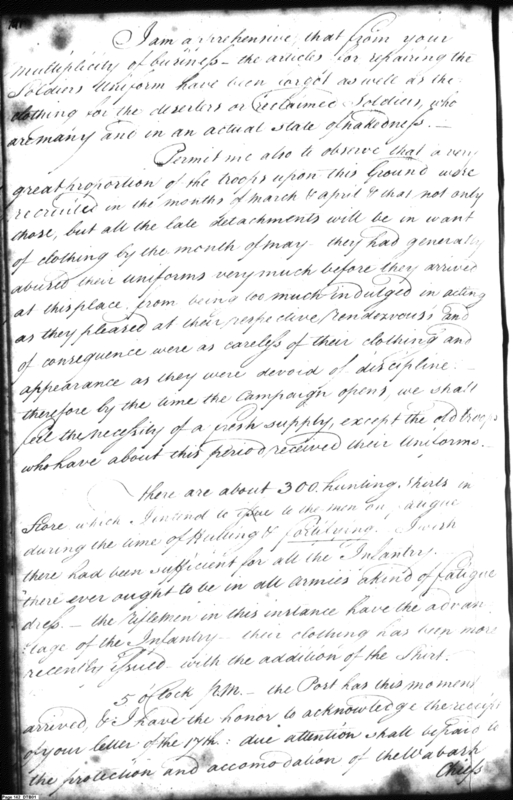 I am apprehensive, that from your
multiplicity of business - the articles for repairing the
Soldiers Uniform have been forgot as well as the
clothing for the deserters or reclaimed Soldiers, who
are many and in an actual state of nakedness. -
Permit me also to observe that a very
great proportion of the troops upon this Ground were
recruited in the months of march & april & that not only
those, but all the late detachments will be in want
of clothing by the month of may - they had generally
abused their uniforms very much before they arrived
at this place, from being too much indulged in acting
as they pleased at their respective rendezvous's and
of consequence were as careless of their clothing and
appearance as they were devoid of discipline: -
therefore by the time the Campaign opens, we shall
feel the necessity of a fresh supply, except the old troops
who have about this period received their Uniforms. -
there are about 300 hunting Shirts in
Store which I intend to give to the men on fatigue
during the time of Hutting & fortifying. I wish
there had been sufficient for all the Infantry.
there ever ought to be in all armies a kind of fatigue
dress - the Riflemen in this instance have the advan
:tage of the Infantry - their clothing has been more
recently issued with the addition of the Shirt.
5 oClock P.M. - the Post has this moment
arrived, & I have the honor to acknowledge the receipt
of your letter of the 17th: due attention shall be paid to
the protection and accomodation of the Wabash
Chiefs